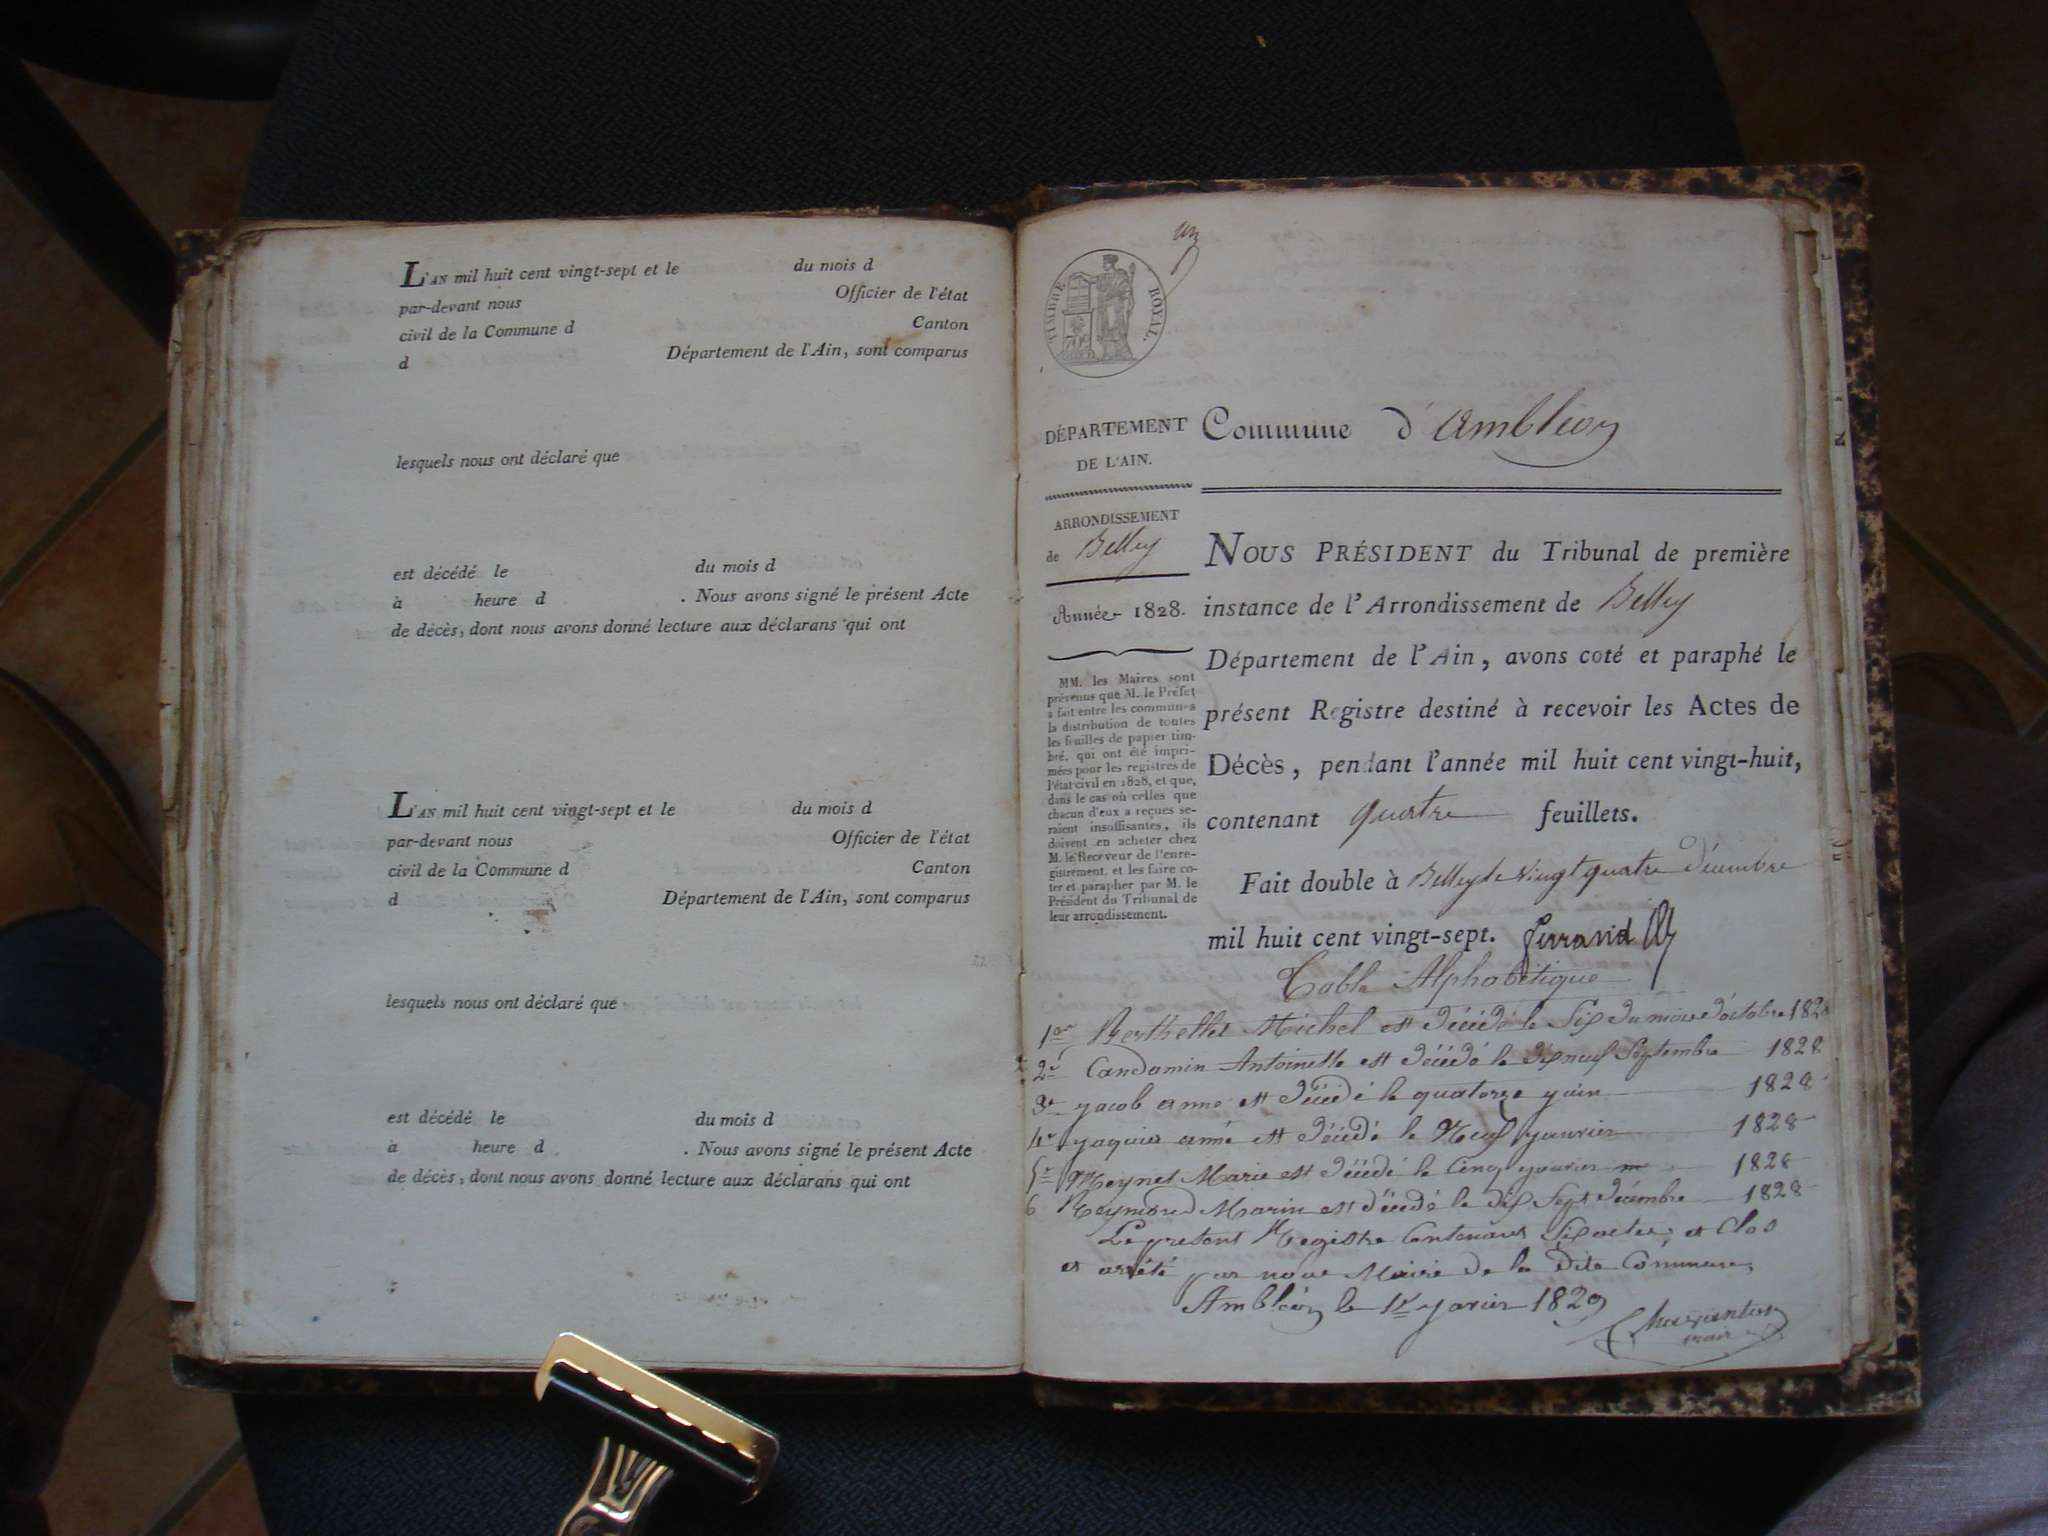 L'AN mil huit cent vingt-sept et le du mois d
par-devant nous Officier de l'état
civil de la Commune d Canton
d Département de l'Ain, sont comparus
lesquels nous ont déclaré que
est décédé le du mois d
à heure d . Nous avons signé le présent Acte
de décès, dont nous avons donné lecture aux déclarans qui ont
L'AN mil huit cent vingt-sept et le du mois d
par-devant nous Officier de l'état
civil de la Commune d Canton
d Département de l'Ain, sont comparus
lesquels nous ont déclaré que
est décédé le du mois d
à heure d . Nous avons signé le présent Acte
de décès, dont nous avons donné lecture aux déclarans qui ont
un
TIMBRE ROYAL.
DÉPARTEMENT
DE L'AIN.
ARRONDISSEMENT
de Belley
Année 1828.
MM. les Maires sont
prévenus que M. le Préfet
a fait entre les communes
la distribution de toutes
les feuilles de papier tim-
bré, qui ont été impri-
mées pour les registres de
l'état civil en 1828, et que,
dans le cas où celles que
chacun d'eux a reçues se-
raient insuffisantes, ils
doivent en acheter chez
M. le Receveur de l'enre-
gistrement, et les faire co-
ter et parapher par M. le
Président du Tribunal de
leur arrondissement.
Commune d'ambléon
NOUS PRÉSIDENT du Tribunal de première
instance de l'Arrondissement de Belley
Département de l'Ain, avons coté et paraphé le
présent Registre destiné à recevoir les Actes de
Décès, pendant l'année mil huit cent vingt-huit,
contenant quatre feuillets.
Fait double à Belley le vingt quatre décembre
mil huit cent vingt-sept. ferrand
Table Alphabétique
1er Berthellet Michel est décédé le Six du mois d'octobre 1828
2e Candamin Antoinette est décédé le dix neuf Septembre 1828
3e yacob anne est décédé le quatorze yuin 1828
4e yaquier anne est décédé le Neuf yanvier 1828
5e Meynet Marie est décédé le Cinq yanvier 1828
6 Reymond Marin est décédé le dix Sept décembre 1828
Le present Registre Contenant Six actes, et Clos
et arrété par nous Maire de la Dite Commune,
Ambléon le 1er yanvier 1829
Charpentier
maire